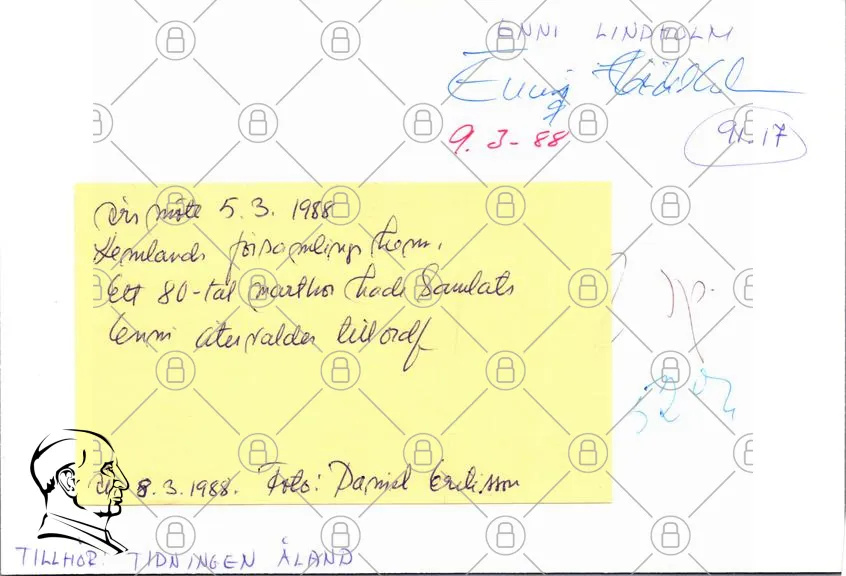 ENNI LINDHOLM
Enni
9.3-88
91.17
års möte 5.3.1988
Jemlands församlingshem.
Ett 80-tal marthor hade samlats
Enni återvaldes till ordf
8.3.1988. Foto: Daniel Eriksson
52
TILLHÖR: TIDNINGEN ÅLAND